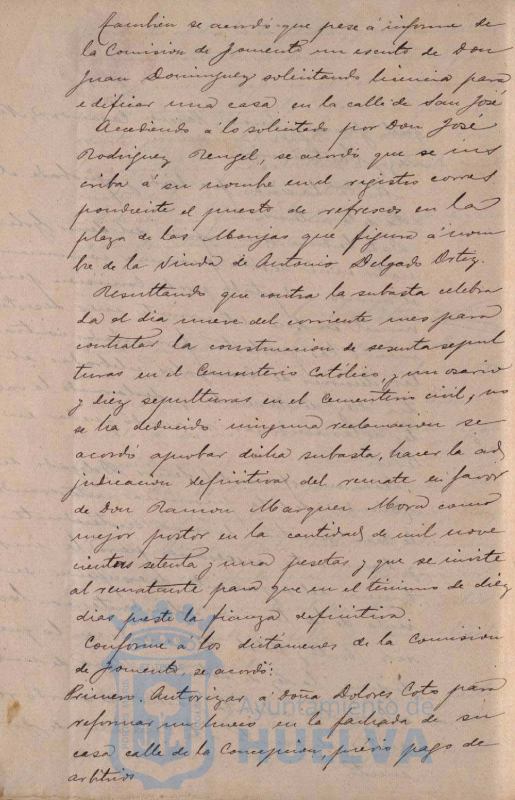 También se acordó que pase á informe de
la Comision de Fomento un escrito de Don
Juan Dominguez solicitando licencia para
edificar una casa en la calle de San José
Accediendo á lo solicitado por Don José
Rodriguez Rengel, se acordó que se ins
criba á su nombre en el registro corres
pondiente el puesto de refrescos en la
plaza de las Monjas que figura á nom
bre de la Viuda de Antonio Delgado Ortiz.
Resultando que contra la subasta celebra
da el dia nueve del corriente mes para
contratar la construccion de sesenta sepul
turas en el Cementerio Católico, y un osario
y diez sepulturas en el cementerio civil, no
se ha deducido ninguna reclamacion se
acordó aprobar dicha subasta, hacer la ad
judicacion definitiva del remate en favor
de Don Ramon Marquez Mora como
mejor postor en la cantidad de mil nove
cientas setenta y una pesetas y que se invite
al rematante para que en el término de diez
dias preste la fianza definitiva.
Conforme á los dictámenes de la Comision
de Fomento, se acordó:
Primero. Autorizar á Doña Dolores Coto para
reformar un hueco en la fachada de su
casa calle de la Concepcion, previo pago de
arbitrios
Ayuntamiento de
HUELVA